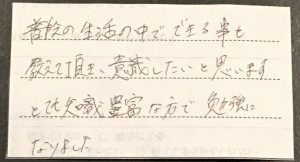 普段の生活の中で できる事も
教えて頂き、意識したいと思います
とても知識豊富な方で 勉強に
なりました